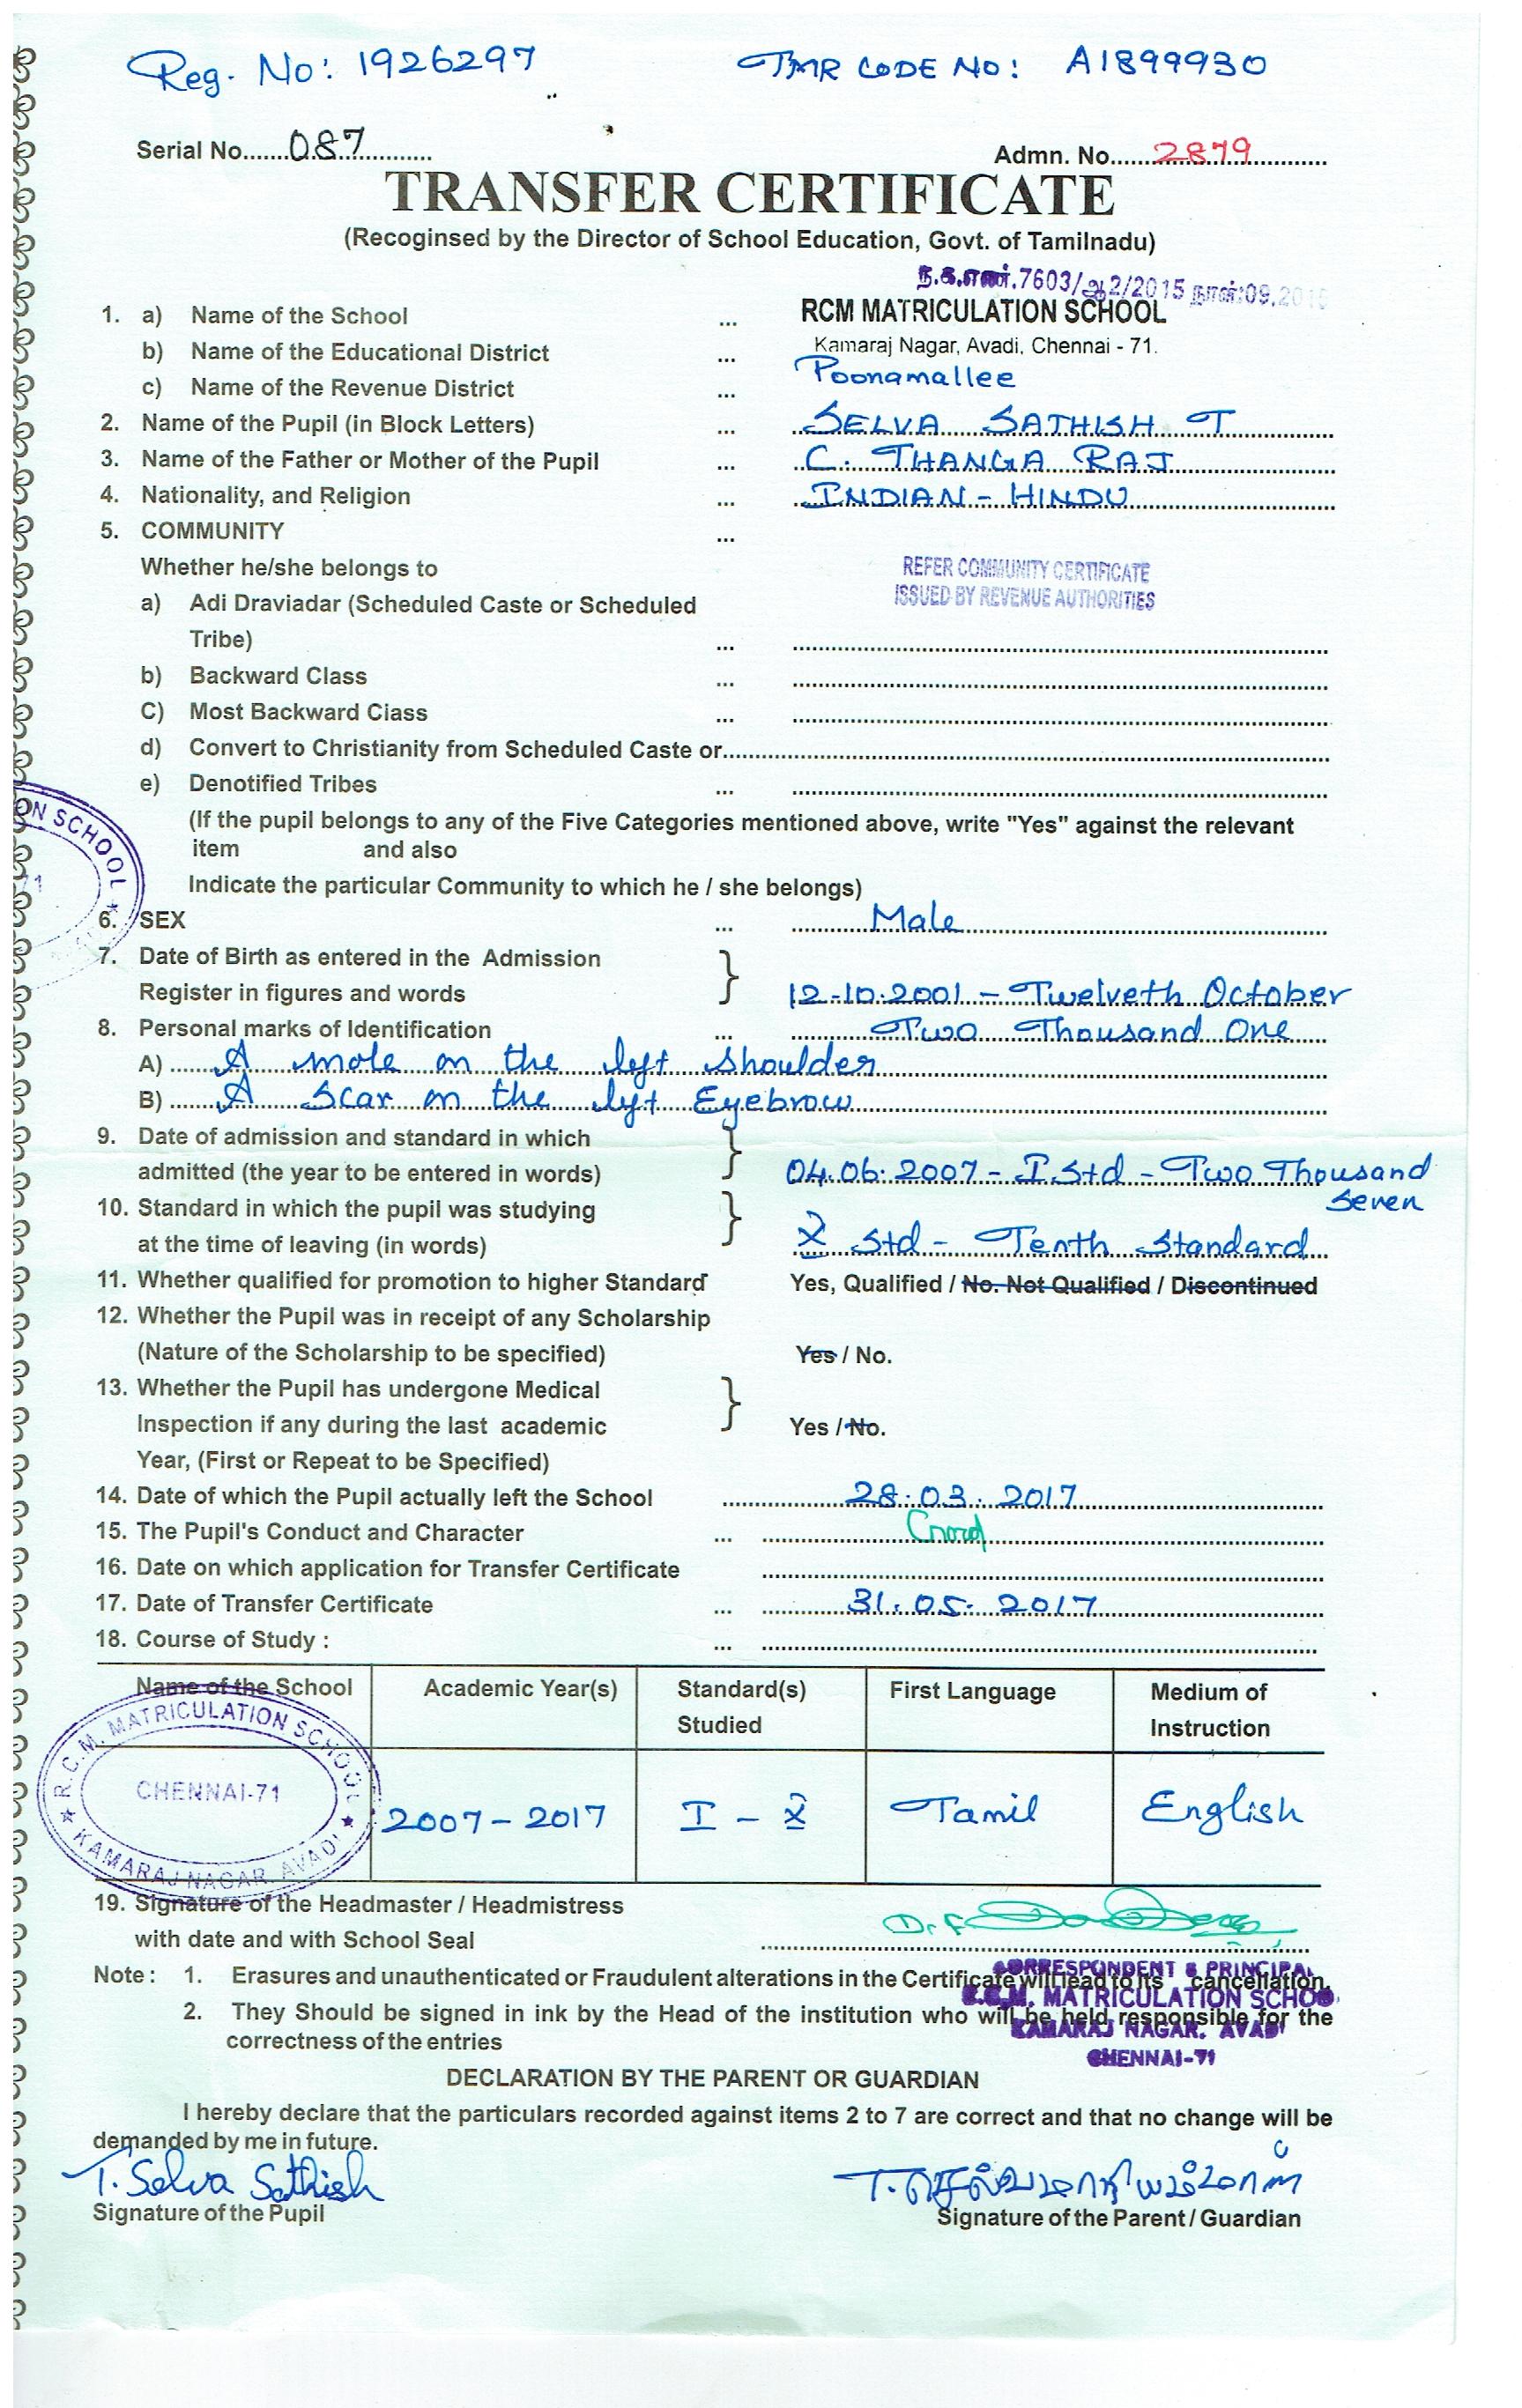 Reg. No: 1926297 TMR CODE NO: A1899930
Serial No......087............ Admn. No......2879............
TRANSFER CERTIFICATE
(Recoginsed by the Director of School Education, Govt. of Tamilnadu)
ந.க.எண்.7603/ஆ2/2015 நாள்:09.2015
1. a) Name of the School ... RCM MATRICULATION SCHOOL
Kamaraj Nagar, Avadi, Chennai - 71.
b) Name of the Educational District ...
Poonamallee
c) Name of the Revenue District ...
2. Name of the Pupil (in Block Letters) ... SELVA SATHISH T
3. Name of the Father or Mother of the Pupil ... C. THANGA RAJ
4. Nationality, and Religion ... INDIAN - HINDU
5. COMMUNITY ...
Whether he/she belongs to
REFER COMMUNITY CERTIFICATE
ISSUED BY REVENUE AUTHORITIES
a) Adi Draviadar (Scheduled Caste or Scheduled
Tribe) ...
b) Backward Class ...
C) Most Backward Class ...
d) Convert to Christianity from Scheduled Caste or
e) Denotified Tribes ...
(If the pupil belongs to any of the Five Categories mentioned above, write "Yes" against the relevant
item and also
Indicate the particular Community to which he / she belongs)
ON SCHOOL ★
71
6. SEX ... Male
7. Date of Birth as entered in the Admission
Register in figures and words } 12-10.2001 - Twelveth October
8. Personal marks of Identification ... Two Thousand One
A) A mole on the left shoulder
B) A Scar on the left Eyebrow
9. Date of admission and standard in which
admitted (the year to be entered in words) } 04.06.2007 - I Std - Two Thousand
Seven
10. Standard in which the pupil was studying
at the time of leaving (in words) } X Std - Tenth Standard
11. Whether qualified for promotion to higher Standard Yes, Qualified / No. Not Qualified / Discontinued
12. Whether the Pupil was in receipt of any Scholarship
(Nature of the Scholarship to be specified) Yes / No.
13. Whether the Pupil has undergone Medical
Inspection if any during the last academic } Yes / No.
Year, (First or Repeat to be Specified)
14. Date of which the Pupil actually left the School 28.03.2017
15. The Pupil's Conduct and Character ... Good
16. Date on which application for Transfer Certificate
17. Date of Transfer Certificate ... 31.05.2017
18. Course of Study : ...
Name of the School Academic Year(s) Standard(s) First Language Medium of
Studied Instruction
R.C.M. MATRICULATION SCHOOL
CHENNAI-71
★ KAMARAJ NAGAR. AVADI ★
2007 - 2017 I - X Tamil English
19. Signature of the Headmaster / Headmistress
with date and with School Seal
Note : 1. Erasures and unauthenticated or Fraudulent alterations in the Certificate will lead to its cancellation.
2. They Should be signed in ink by the Head of the institution who will be held responsible for the
correctness of the entries
CORRESPONDENT & PRINCIPAL
R.C.M. MATRICULATION SCHOO
KAMARAJ NAGAR. AVADI
CHENNAI-71
DECLARATION BY THE PARENT OR GUARDIAN
I hereby declare that the particulars recorded against items 2 to 7 are correct and that no change will be
demanded by me in future.
T. Selva Sathish
Signature of the Pupil Signature of the Parent / Guardian